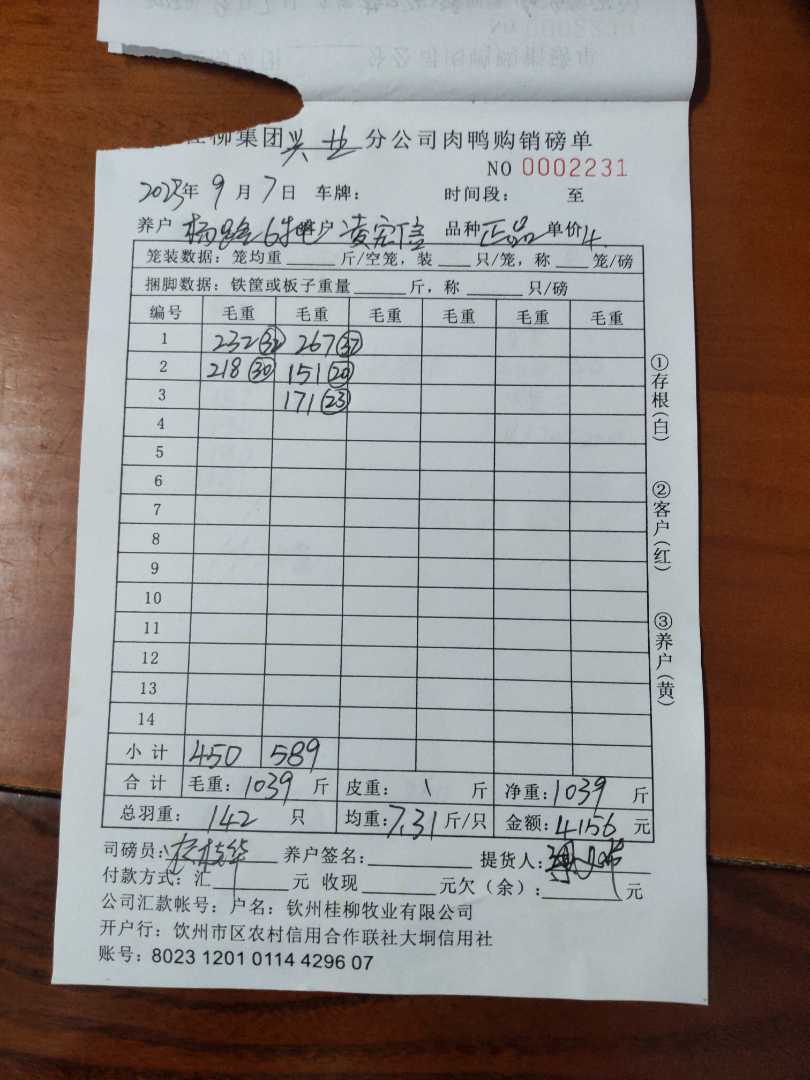 柳集团兴业分公司肉鸭购销磅单
NO 0002231
2023年9月7日 车牌： 时间段： 至
养户 杨 6 户 凌宏信 品种正品单价4.
笼装数据：笼均重 斤/空笼，装 只/笼，称 笼/磅
捆脚数据：铁筐或板子重量 斤，称 只/磅
编号 毛重 毛重 毛重 毛重 毛重 毛重
1 232(32) 267(37)
2 218(30) 151(20)
3 171(23)
4
5
6
7
8
9
10
11
12
13
14
小计 450 589
合计 毛重：1039斤 皮重：\ 斤 净重：1039 斤
总羽重：142 只 均重：7.31斤/只 金额：4156 元
司磅员： 养户签名： 提货人：
付款方式：汇 元 收现 元欠（余）： 元
公司汇款帐号：户名：钦州桂柳牧业有限公司
开户行：饮州市区农村信用合作联社大垌信用社
账号：8023 1201 0114 4296 07
①存根(白)
②客户(红)
③养户(黄)